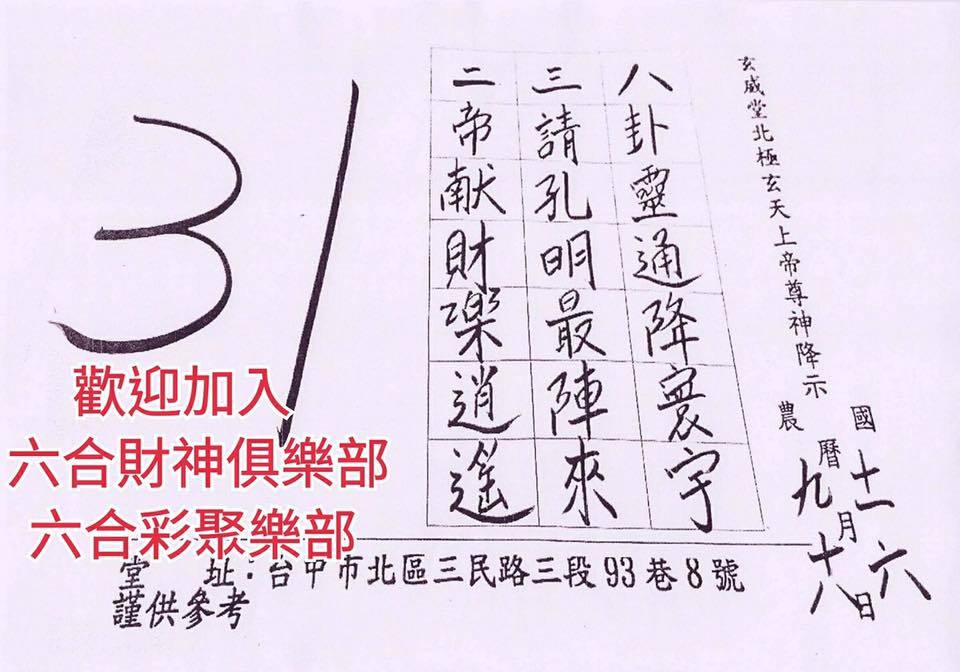 玄威堂北極玄天上帝尊神降示
國曆十一月六日
農曆九月十八日
八卦靈通降寰宇
三請孔明最陣來
二帝献財樂逍遙
31
歡迎加入
六合財神俱樂部
六合彩聚樂部
堂 址:台中市北區三民路三段93巷8號
謹供參考